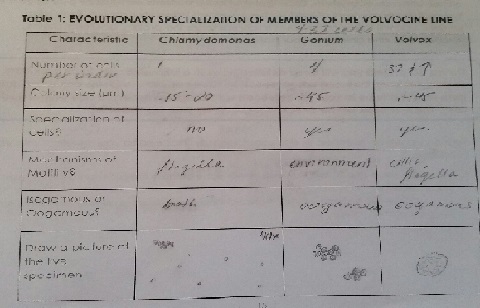 Table 1: EVOLUTIONARY SPECIALIZATION OF MEMBERS OF THE VOLVOCINE LINE
4-32 cells
Characteristic Chlamydomonas Gonium Volvox
Number of cells
per
1 4 32 & ↑
Colony size (μm) ~45
Specialization of
cells? no yes yes
Mechanisms of
Motility? flagella environment
flagella
Isogamous or
Oogamous? both oogamous oogamous
Draw a picture of
the live
specimen